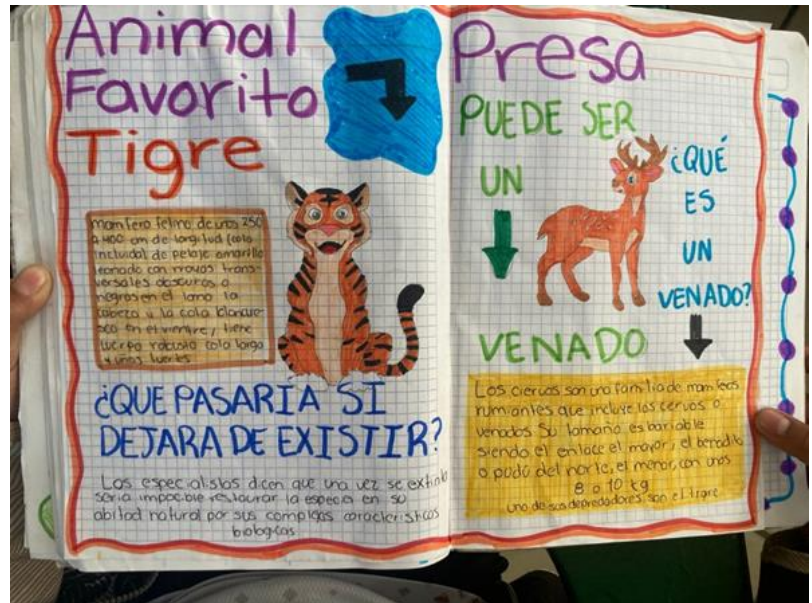 Animal
Favorito
Tigre
mamfero felino de unos 250
a 400 cm de longitud (cola
incluida) de pelaje amarillo
leonado con rayas trans-
versales obscuros o
negros en el lomo la
cabeza y la cola blancue-
sco en el vientre, tiene
cuerpo robusto cola larga
y uñas fuertes
¿QUE PASARÍA SI
DEJARA DE EXISTIR?
Los especialistas dicen que una vez se extinta
sería impocible restaurar la especies en su
abitad natural por sus complejas caracteristicas
biologicas
Presa
PUEDE SER
UN
VENADO
¿QUÉ
ES
UN
VENADO?
Los ciervos son una familia de mamfeos
rumiantes que incluye los cervos o
venados Su tamaño es bariable
siendo el enlace el mayor, el benadito
o pudú del norte, el menor, con unos
8 a 10 kg
uno de sus depredadores son el tigre